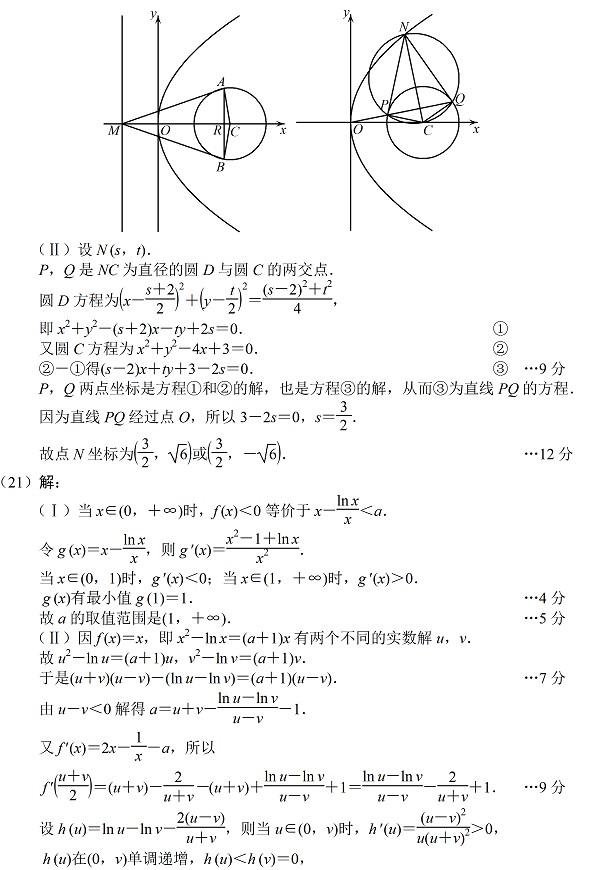 y
A
M O R C x
B
y
N
P Q
O C x
(Ⅱ)设 N (s，t).
P，Q 是 NC 为直径的圆 D 与圆 C 的两交点.
圆 D 方程为(x－\frac{s＋2}{2})²＋(y－\frac{t}{2})²＝\frac{(s－2)²＋t²}{4}，
即 x²＋y²－(s＋2)x－ty＋2s＝0. ①
又圆 C 方程为 x²＋y²－4x＋3＝0. ②
②－①得(s－2)x＋ty＋3－2s＝0. ③ …9 分
P，Q 两点坐标是方程①和②的解，也是方程③的解，从而③为直线 PQ 的方程.
因为直线 PQ 经过点 O，所以 3－2s＝0，s＝\frac{3}{2}.
故点 N 坐标为(\frac{3}{2}，√6)或(\frac{3}{2}，－√6). …12 分
(21) 解：
(Ⅰ)当 x∈(0，＋∞)时，f (x)＜0 等价于 x－\frac{ln x}{x}＜a.
令 g (x)＝x－\frac{ln x}{x}，则 g ′(x)＝\frac{x²－1＋ln x}{x²}.
当 x∈(0，1)时，g ′(x)＜0；当 x∈(1，＋∞)时，g ′(x)＞0.
g (x)有最小值 g (1)＝1. …4 分
故 a 的取值范围是(1，＋∞). …5 分
(Ⅱ)因 f (x)＝x，即 x²－ln x＝(a＋1)x 有两个不同的实数解 u，v.
故 u²－ln u＝(a＋1)u，v²－ln v＝(a＋1)v.
于是(u＋v)(u－v)－(ln u－ln v)＝(a＋1)(u－v). …7 分
由 u－v＜0 解得 a＝u＋v－\frac{ln u－ln v}{u－v}－1.
又 f ′(x)＝2x－\frac{1}{x}－a，所以
f ′(\frac{u＋v}{2})＝(u＋v)－\frac{2}{u＋v}－(u＋v)＋\frac{ln u－ln v}{u－v}＋1＝\frac{ln u－ln v}{u－v}－\frac{2}{u＋v}＋1. …9 分
设 h (u)＝ln u－ln v－\frac{2(u－v)}{u＋v}，则当 u∈(0，v)时，h ′(u)＝\frac{(u－v)²}{u(u＋v)²}＞0，
h (u)在(0，v)单调递增，h (u)＜h (v)＝0，